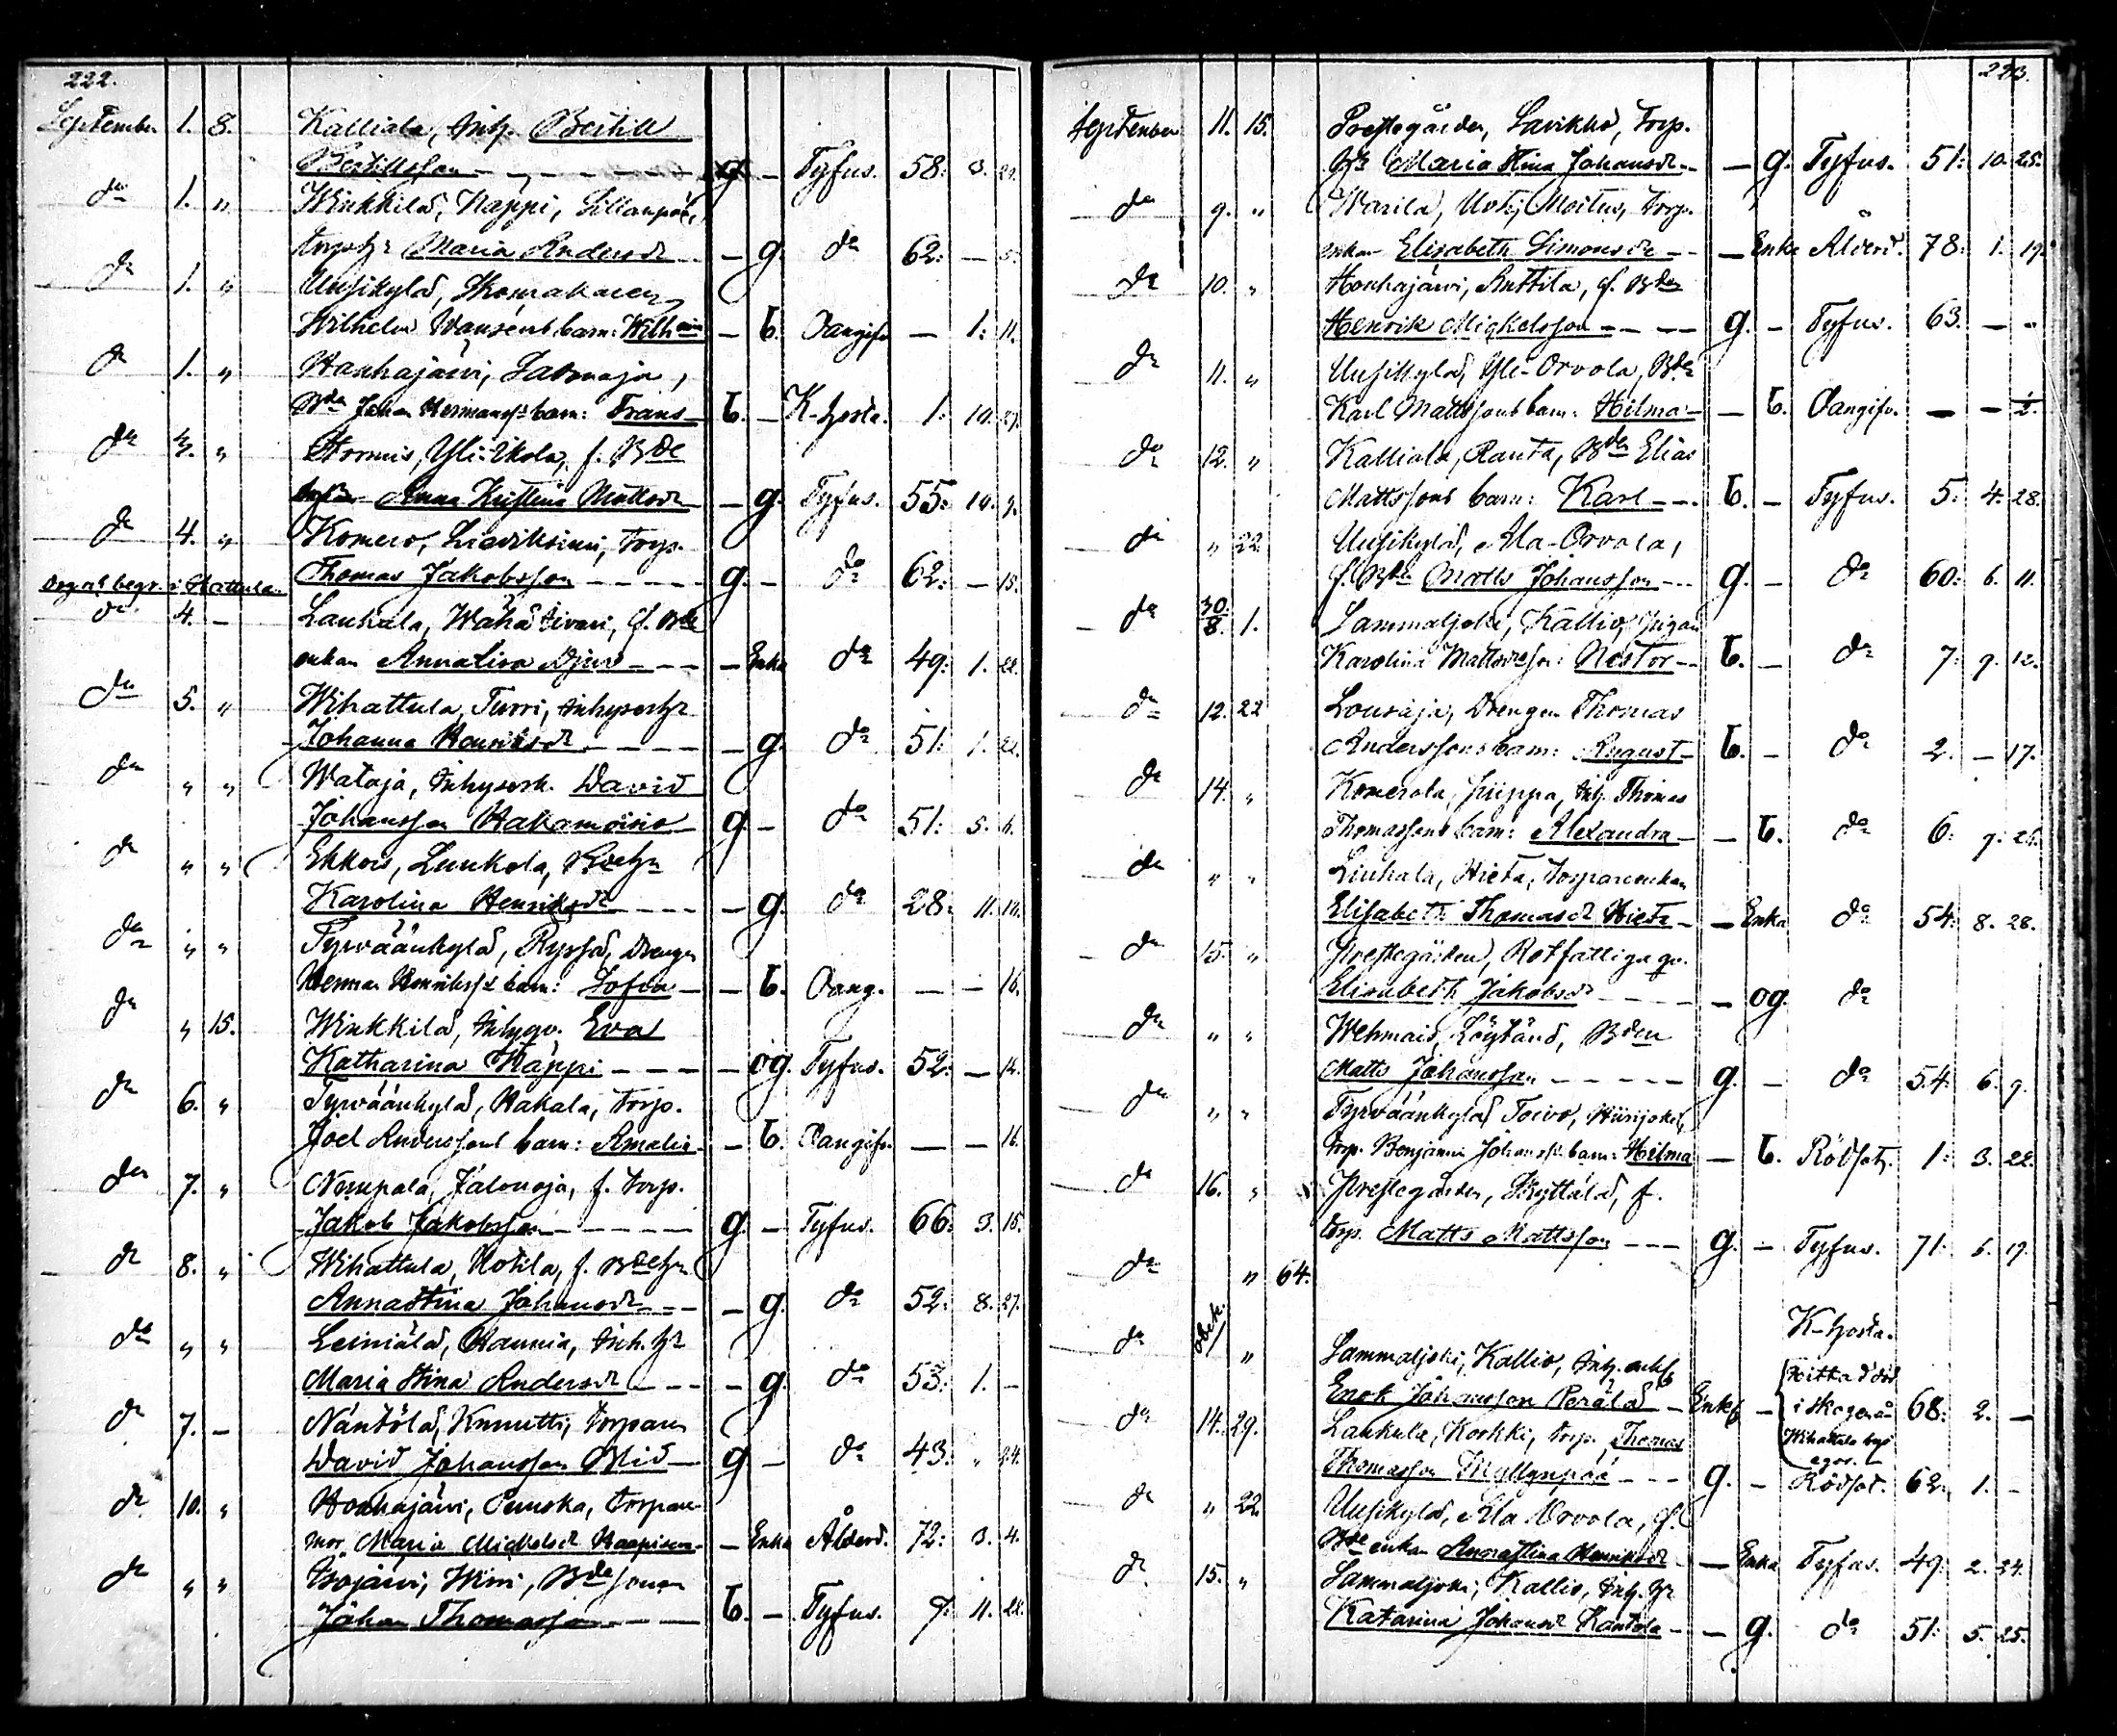 222.
September 1. 8. Kalliala, Inh. Bertill
Bertillsson g. Tyfus. 58: 3. 21.
do 1. " Winkkilä, Näppi, Sillanpää,
torph:u Maria Andersdr g. do 62: — 5.
do 1. " Uusikylä,
Wilhelm barn: Wilh — b. Oangifv. — 1: 11.
do 1. " Hanhajärvi,
Bden Johan Hermanss:s barn: Frans b. — K-hosta. 1: 10. 27.
do 3. " Hormis, Yli-Ikola, f. Bde
Anna Kristina Mattsdr — g. Tyfus. 55: 10. 9.
do 4. " Komero, torp.
Thomas Jakobsson g. — do 62: — 15.
begr. i Hattula
do 4. — Laukula, Wähä f. Bde
enkan Annaliva — Enka do 49: 1. 22.
do 5. " Wihattula, Turri, Inhysesh:u
Johanna Henriksdr — g. do 51: 1. 22.
do " " Wataja, Inhysesk. David
Johansson Hakamoisio g. — do 51: 5. 6.
do " " Ekkois, Lunkola,
Karolina Henriksdr — g. do 28: 11. 10.
do " " Tyrväänkylä, Ryssä, Drengen
Herman Henrikss:s barn: Sofia — b. Oang. — — 16.
do " 15. Winkkilä, Inhyqv. Eva
Katharina Näppi — og. Tyfus. 52: — 14.
do 6. " Tyrväänkylä, Hakala, Torp.
Joel Anderssons barn: Amalia — b. Oangifv. — — 16.
do 7. " Numpala, Jälonoja, f. torp.
Jakob Jakobsson g. — Tyfus. 66: 3. 15.
do 8. " Wihattula, Hotila, f. Bdeh:u
Annastina Johansdr — g. do 52: 8. 27.
do " " Leiniälä, Hannia, Inh. h:u
Maria Stina Andersdr — g. do 53: 1. —
do 7. — Näntölä, Knuutti, torparen
David Johansson g. — do 43: " 24.
do 10. " Honhajärvi, Punska, torpare-
mor Maria Mickelsdr — Enka Ålderd. 72: 3. 4.
do " " Isojärvi, Wirri, Bde sonen
Johan Thomasson b. — Tyfus. 9: 11. 28.
223.
September 11. 15. Prestegården, Lavikko, torp.
h:u Maria Stina Johansdr — g. Tyfus. 51: 10. 25.
do 9. " Warila, Uoti, Moitus, torp.
enkan Elisabeth Simonsdr — Enka Ålderd. 78: 1. 19.
do 10. " Honhajärvi, Anttila, f. Bden
Henrik Mickelsson g. — Tyfus. 63. — —
do 11. " Uusikylä, Yli-Orvola, Bden
Karl Mattssons barn: Hilma — b. Oangifv. — — ½.
do 12. " Kalliala, Ranta, Bden Elias
Mattssons barn: Karl b. — Tyfus. 5: 4. 28.
do " 22. Uusikylä, Ala-Orvola,
f. Bden Matts Johansson g. — do 60: 6. 11.
do 30/8. 1. Sammaljoki, Kallio, Pigan
Karolina Mattsdrs son: Nestor b. — do 7: 9. 12.
do 12. 22. Lousaja, Drengen Thomas
Anderssons barn: August b. — do 2. — 17.
do 14. " Komerola, Inh. Thomas
Thomassons barn: Alexandra — b. do 6: 9. 26.
do " " Liuhala, Hieta, torpareenkan
Elisabeth Thomasdr Hieta — Enka do 54: 8. 28.
do 15. " Prestegården, Rotfattiga qv.
Elisabeth Jakobsdr — og. do
do " " Wehmais, Löytänä, Bden
Matts Johansson g. — do 54: 6. 9.
do " " Tyrväänkylä, Toivo, Hiirijoki,
torp. Benjamin Johanss:s barn: Hilma — b. Rödsot. 1: 3. 22.
do 16. " Prestegården, Kyttälä, f.
torp. Matts Mattsson g. — Tyfus. 71: 5. 19.
do " 64.
K-hosta.
do obek. " Sammaljoki, Kallio, Inh. enkl.
Enok Johansson Perälä Enkl. — hittad död i skogen å Wihattula bys egor. 68: 2. —
do 14. 29. Laukula, Korkki, torp. Thomas
Thomasson Myllynpää g. — Rödsot. 62: 1. —
do " 22. Uusikylä, Ala Orvola, f.
Bde enkan Annastina Henriksdr — Enka Tyfus. 49: 2. 24.
do 15. " Sammaljoki, Kallio, Inh. h:u
Katarina Johansdr Kantola — g. do 51: 5. 25.